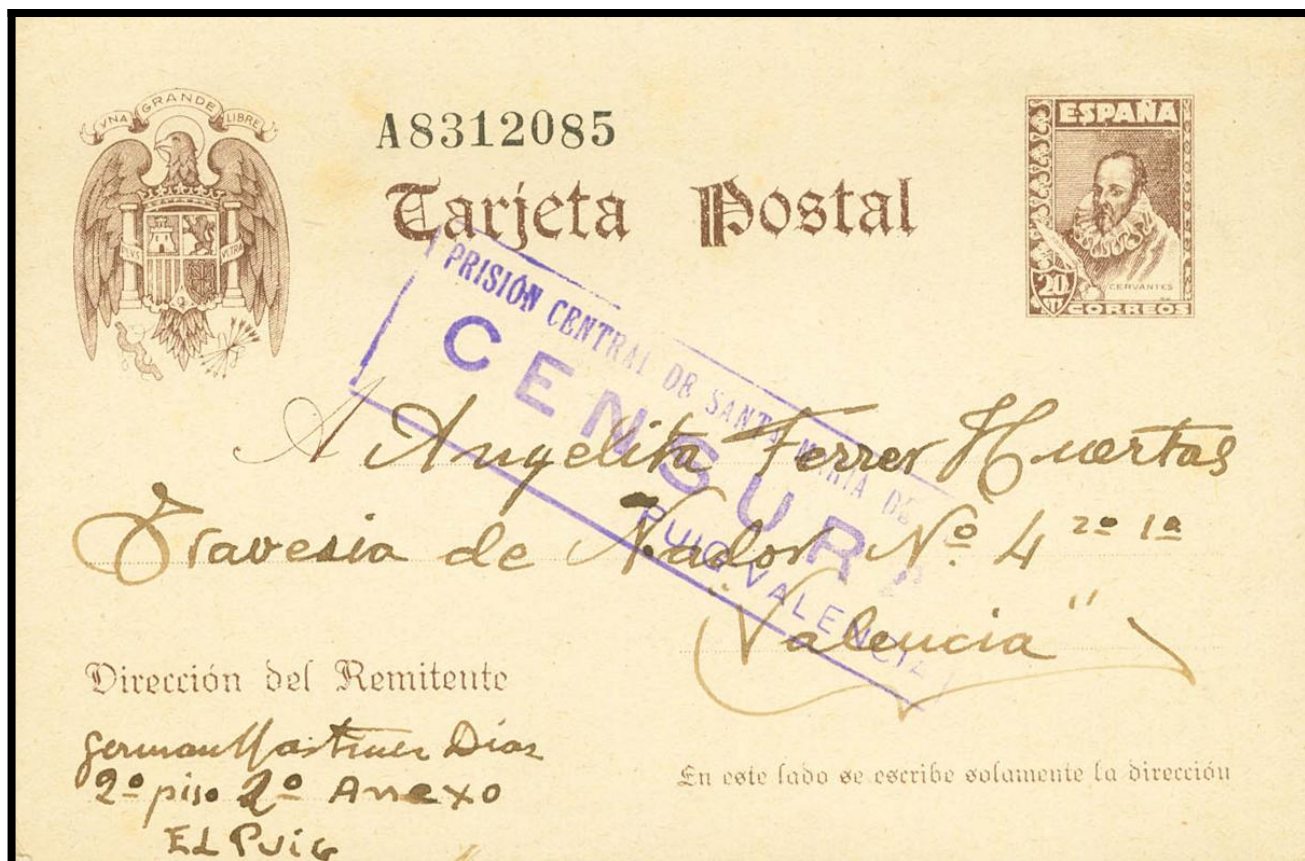 UNA GRANDE LIBRE
A8312085
Tarjeta Postal
PLUS ULTRA
ESPAÑA
CERVANTES
20 CTS
CORREOS
PRISIÓN CENTRAL DE SANTA MARIA DE
CENSURA
PUIG VALENCIA
A Angelita Ferrer Huertas
Travesia de Nador Nº 4 2º 1ª
"Valencia"
Dirección del Remitente
German Martinez Dias
2º piso 2º Anexo
EL PUIG
En este lado se escribe solamente la dirección